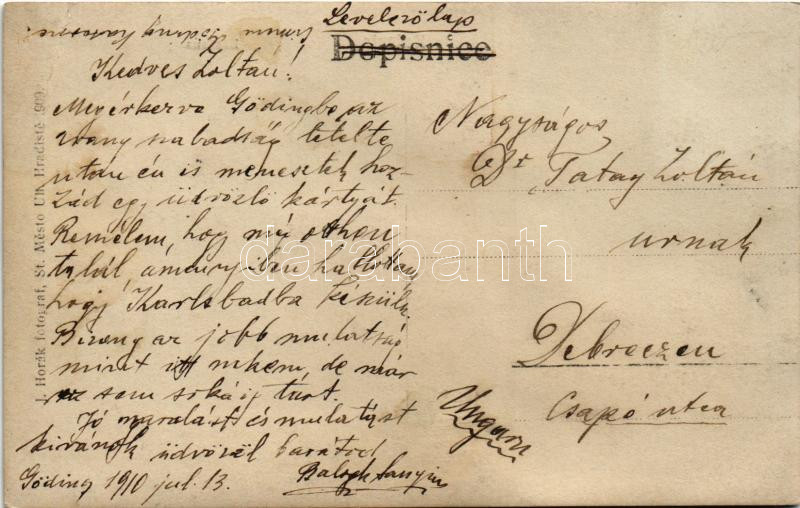 Levelezőlap
Dopisnice
Kedves Zoltán!
Megérkezve Gödingbe, az
arany szabadság letelte
után én is menesztek hoz-
zád egy üdvözlő kártyát.
Remélem, hogy még otthon
talál, amennyiben hallottam
hogy Karlsbadba készülsz.
Bizony az jobb mulatság
mint itt nekem, de már
ez sem soká ig tart.
Jó maradást és mulatást
kívánok üdvözöl barátod
Göding 1910 jul. 13.
Balogh Sanyi
Nagyságos
Dr Tatay Zoltán
urnak
Debreczen
Csapó utca
Ungarn
J. Horák fotograf, St. Město Uh. Hradiště 1909.
darabanth